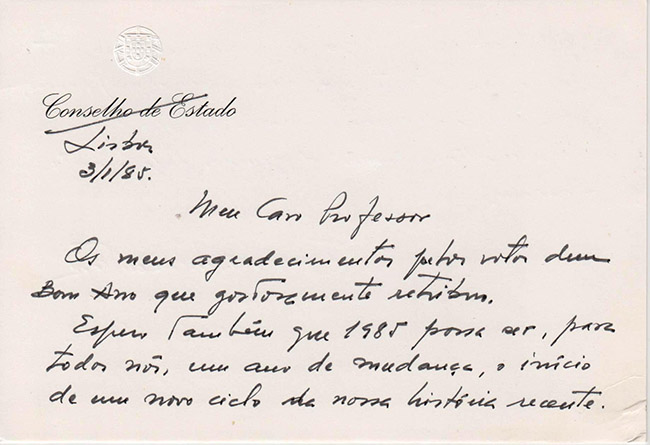 Conselho de Estado
Lisboa
3/1/85.
Meu Caro Professor
Os meus agradecimentos pelos votos dum
Bom Ano que gostosamente retribuo.
Espero também que 1985 possa ser, para
todos nós, um ano de mudança, o início
de um novo ciclo da nossa história recente.